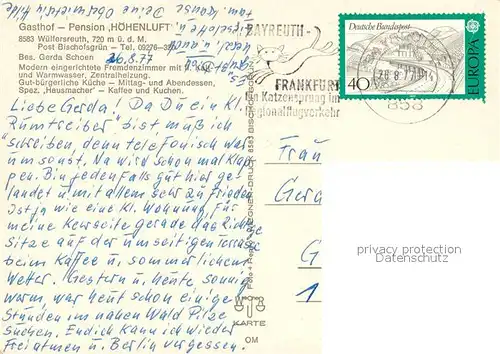 Gasthof – Pension „HÖHENLUFT"
8583 Wülfersreuth, 720 m ü. d. M.
Post Bischofsgrün – Tel. 09276-
Bes. Gerda Schoen
26.8.77
Modern eingerichtete Fremdenzimmer mit fl. Kalt-
und Warmwasser, Zentralheizung.
Gut-bürgerliche Küche – Mittag- und Abendessen,
Spez. „Hausmacher" – Kaffee und Kuchen.
Liebe Gerda! Da Du ein kl.
Rumtreiber bist muß ich
schreiben, denn telefonisch war
umsonst. Na wird schon mal klap-
pen. Bin jedenfalls gut hier ge-
landet u. mit allem sehr zufrieden
Ist ja wie eine kl. Wohnung, für
meine Reiseseite gerade das Richtige
Sitze auf der umseitigen Terrasse
beim Kaffee u. sommerlichem
Wetter. Gestern u. heute sonnig
warm, war heut schon einige
Stunden im nahen Wald Pilze
suchen. Endlich kann ich wieder
frei atmen u. Berlin vergessen.
BAYREUTH-
FRANKFURT
ein Katzensprung im
Regionalflugverkehr
Deutsche Bundespost
EUROPA
40
26.8.77
858
Frau
Gerd
G
1
KARTE
OM
privacy protection
Datenschutz